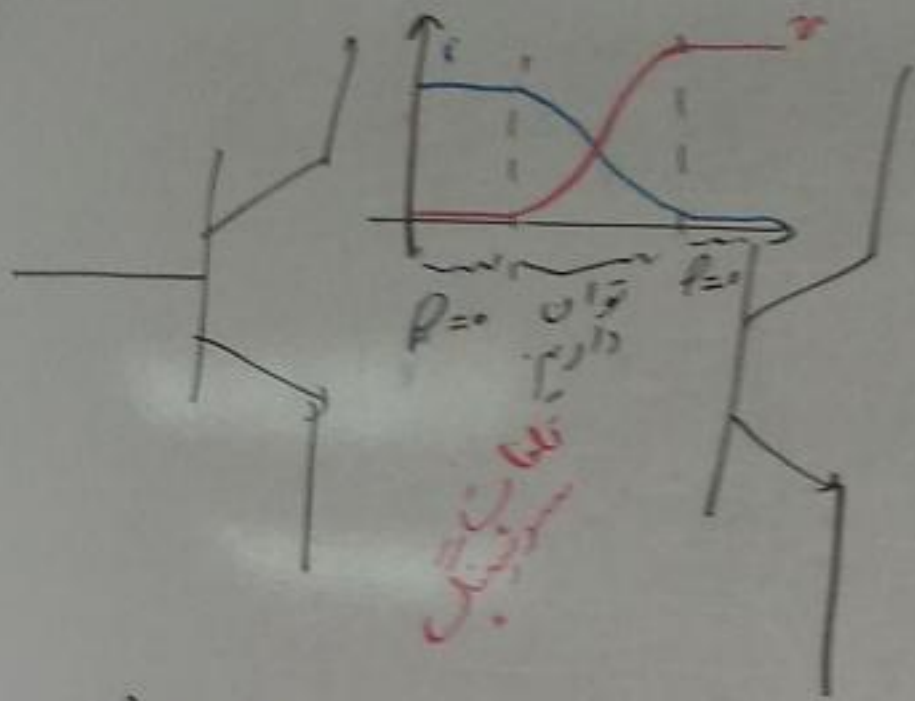 i
v
P=0
توان
داریم
P=0
تلفات
سوئیچینگ